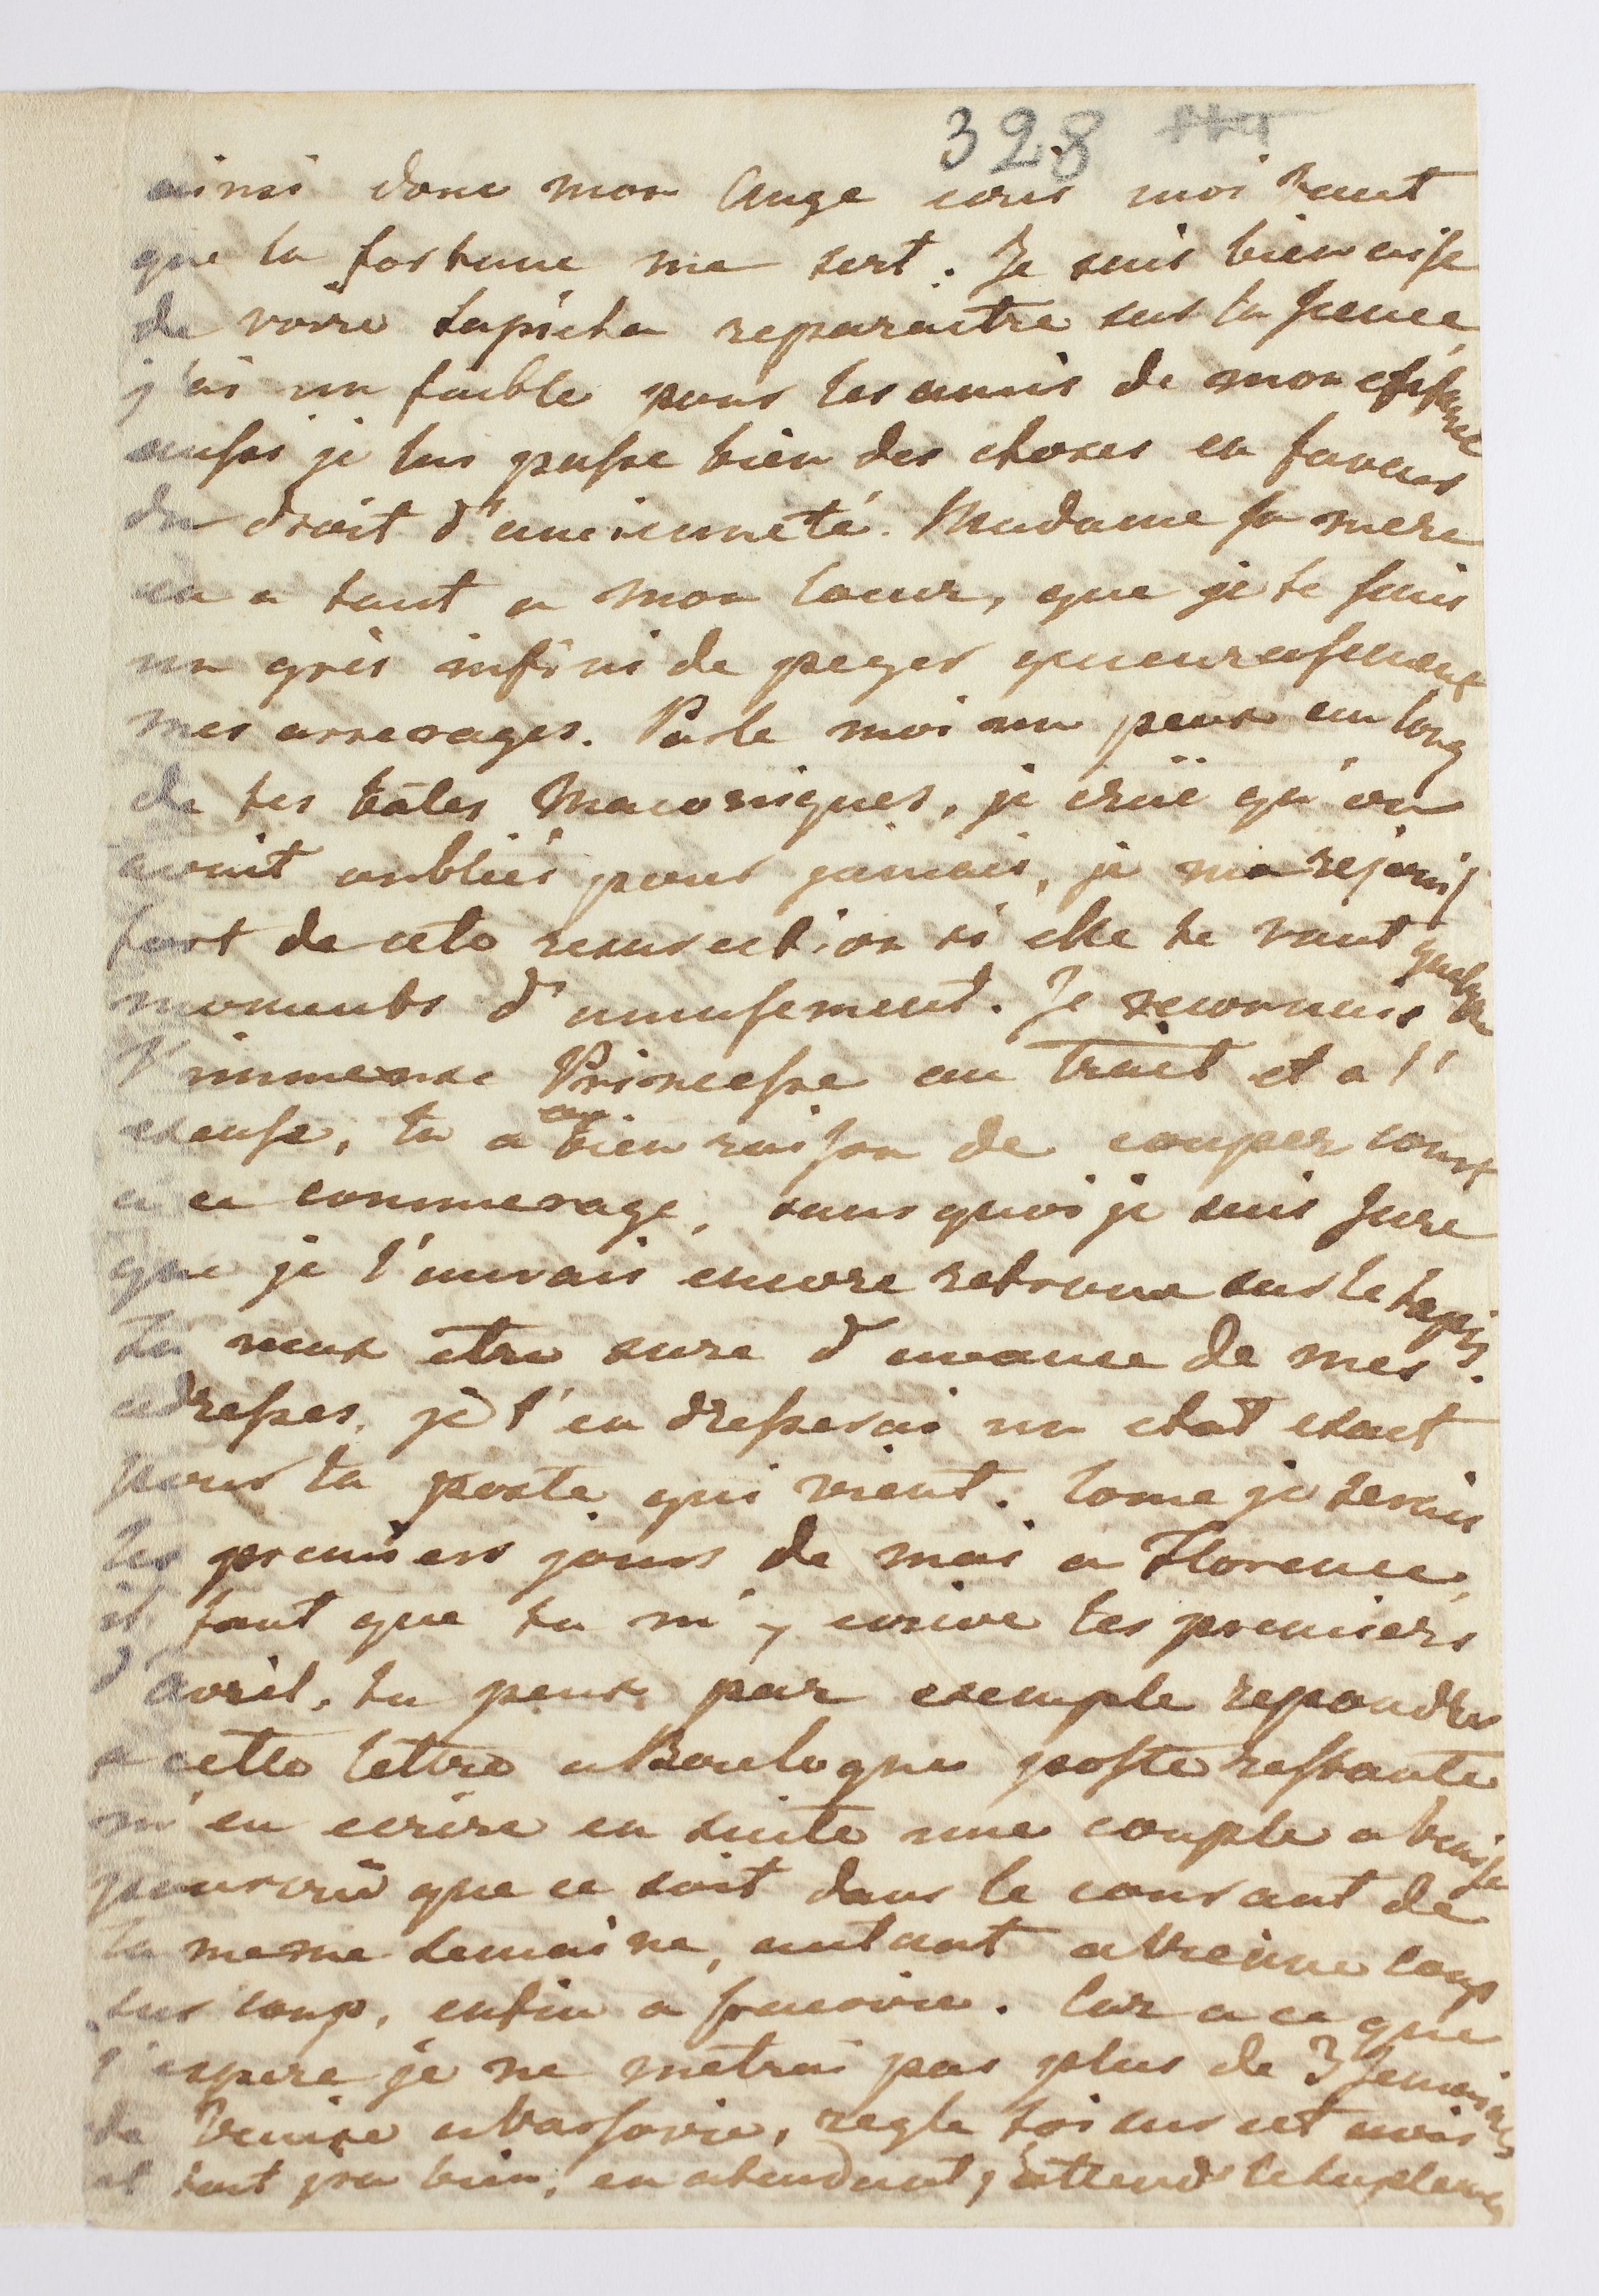 328
ainsi donc mon Ange ecris moi tant
que la fortune me sert. Je suis bien aise
de voire Sapieha reparaitre sur la scene,
j'ai un faible pour les amis de mon enfance
aussi je lui passe bien des choses en faveur
du droit d'ancienneté. Madame sa mere
en a tant a mon coeur, que je te sais
un grés infini de peyer
mes arrerages. Parle moi un peux au long
de tes bâles Maconiques, je crüe qu'on
avait oubliés pour jamais, je me rejouis
fort de cete resurection si elle te vaut quelque
moments d'amusement. Je reconnais de
l'immense Princesse au trait et a l'
excuse, tu a bien raison de couper court
a ce commerage, sans quoi je suis sure
que je l'aurais encore retrouve sur le tapis.
tu veux etre sure d'avance de mes
adresses, je t'en dresserai un etat exact
pour la poste qui vient. Come je serais
les premiers jours de mai a Florence,
il faut que tu m'y ecrive les premiers
d'avril, tu peux par exemple repondre
a cette lettre a Boulogne poste restante
m'en ecrire en suite une couple a Venise
pourvü que ce soit dans le courant de
la meme semaine, autant a Vienne coup
sur coup, enfin a Cracovie. Car a ce que
j'espere je ne metrai pas plus de 3 semaines
de Venise a Varsovie, regle toi sur cet avis
et tout ira bien, en atendant j'attend